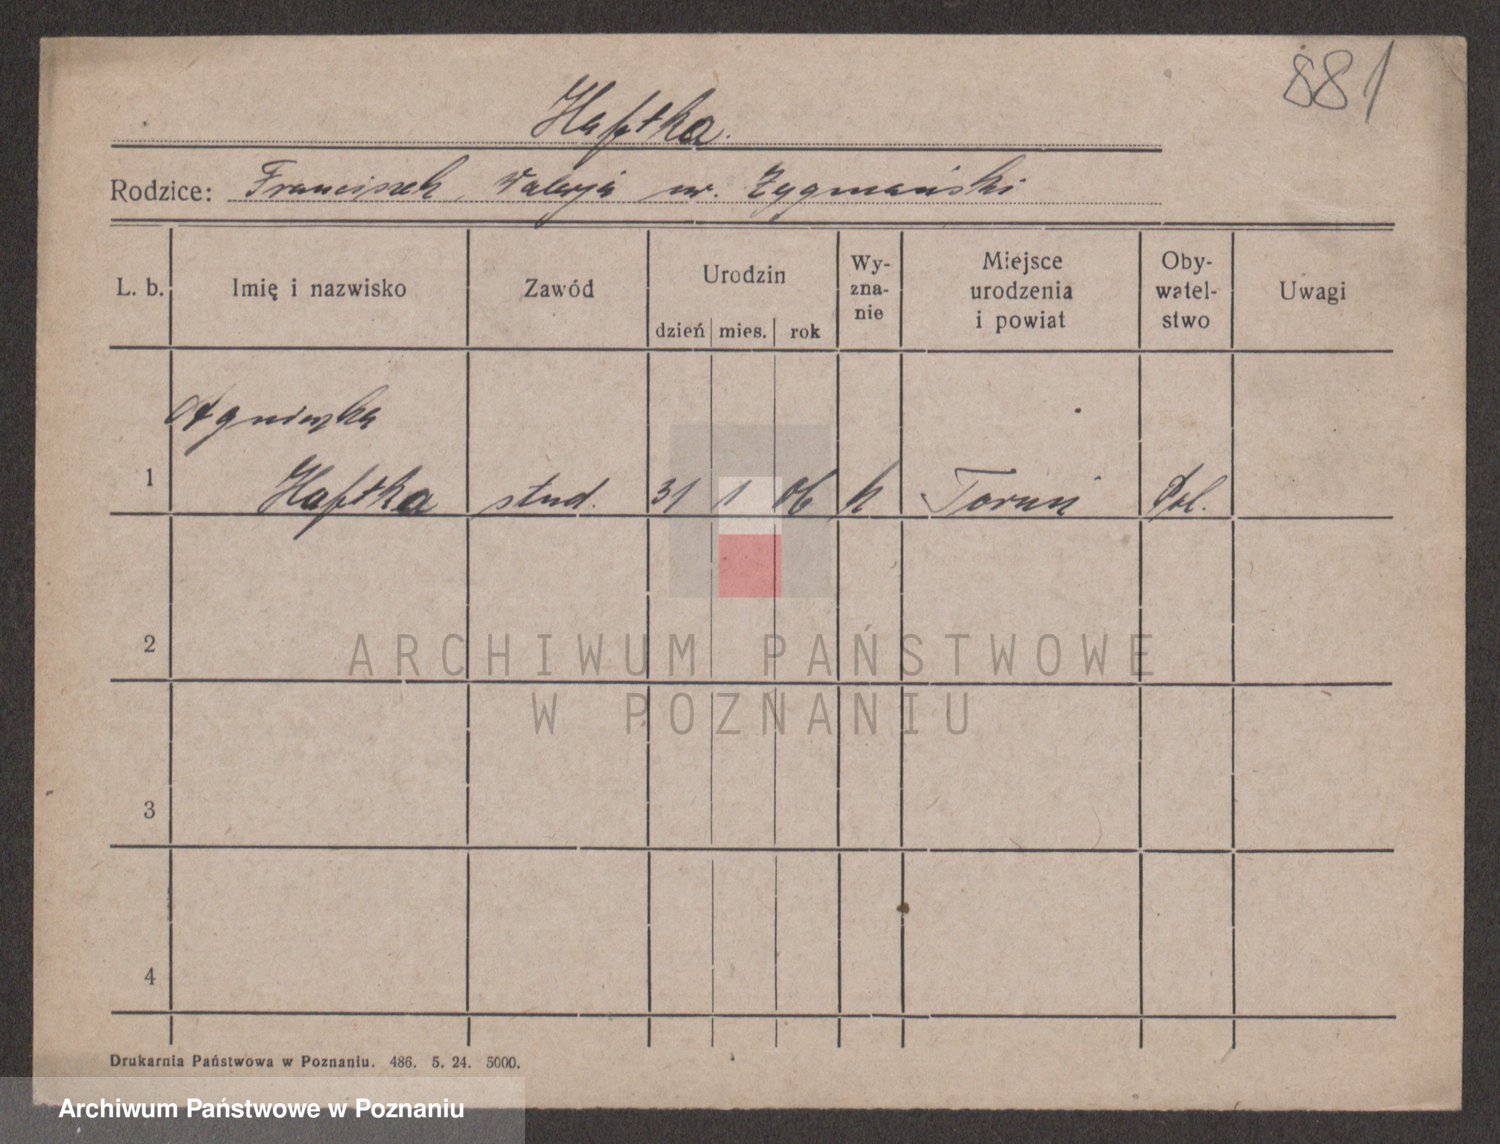 881
Haftka.
Rodzice: Franciszek, Walerja ur. Zygmański
L. b. Imię i nazwisko Zawód Urodzin dzień mies. rok Wy-zna-nie Miejsce urodzenia i powiat Oby-watel-stwo Uwagi
Agnieszka
1 Haftka stud. 31 1 06 k Toruń Pol.
2
ARCHIWUM PAŃSTWOWE
W POZNANIU
3
4
Drukarnia Państwowa w Poznaniu. 486. 5. 24. 5000.
Archiwum Państwowe w Poznaniu